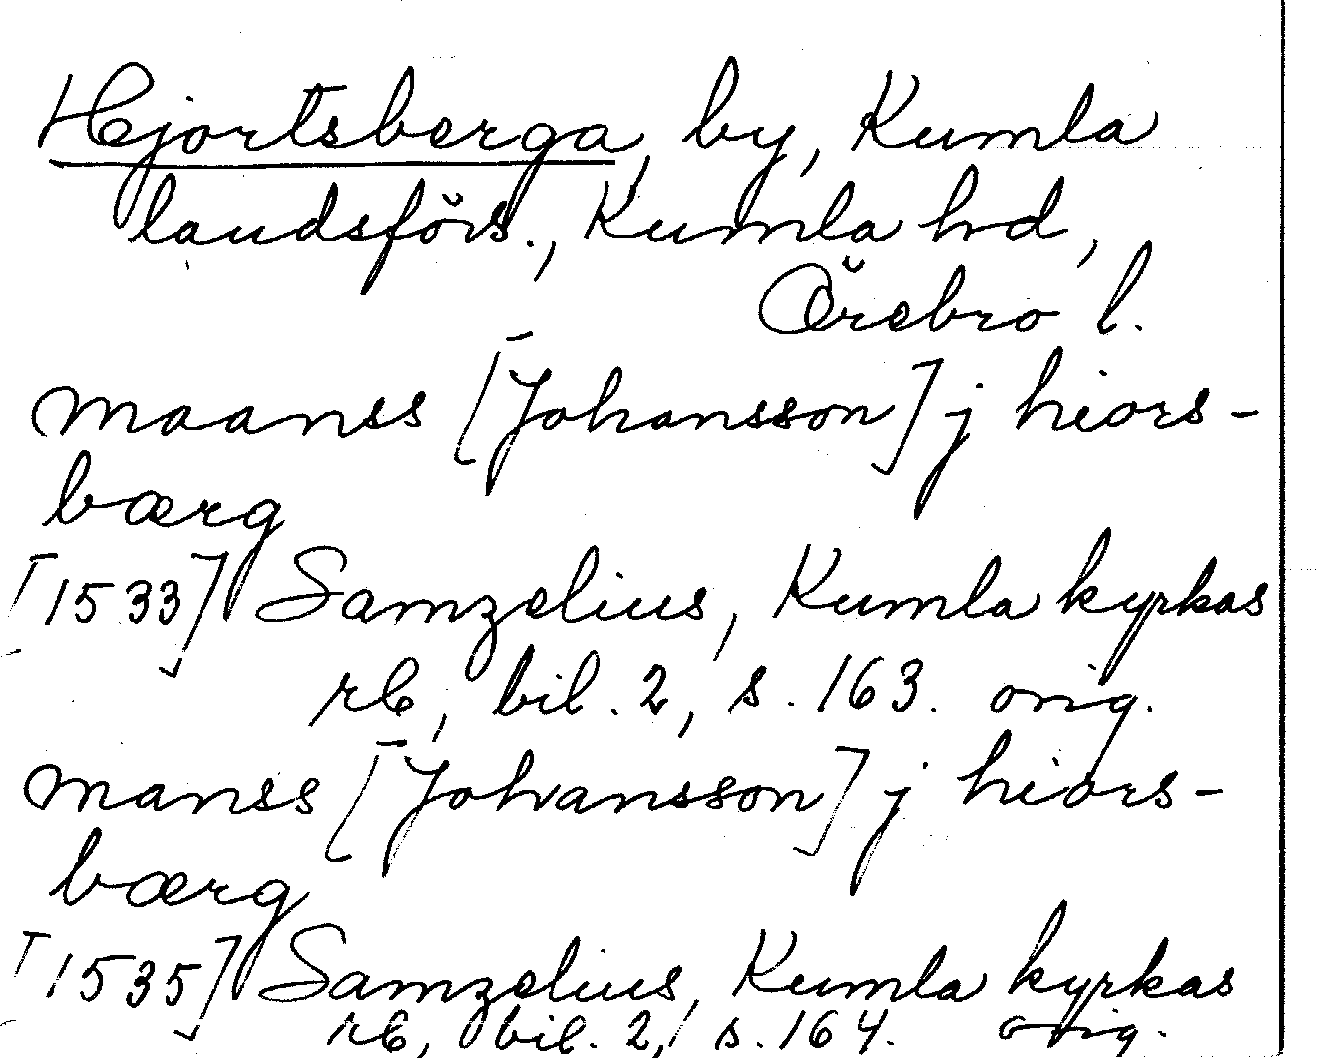 Hjortsberga, by, Kumla
landsförs., Kumla hd,
Örebro l.
maanss [Johansson] j hiors-
bærg
[1533] Samzelius, Kumla kyrkas
rb, bil. 2, s. 163. orig.
manss [Johansson] j hiors-
bærg
[1535] Samzelius, Kumla kyrkas
rb, bil. 2, s. 164. orig.